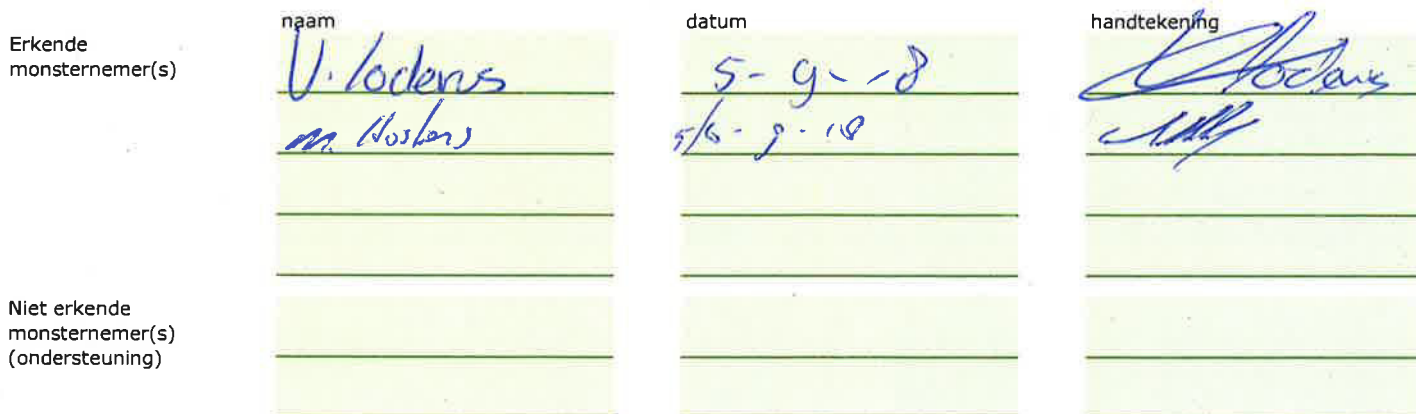 naam datum handtekening
Erkende
monsternemer(s)
V. Loderus 5-9-18
M. 5/6-9-18
Niet erkende
monsternemer(s)
(ondersteuning)